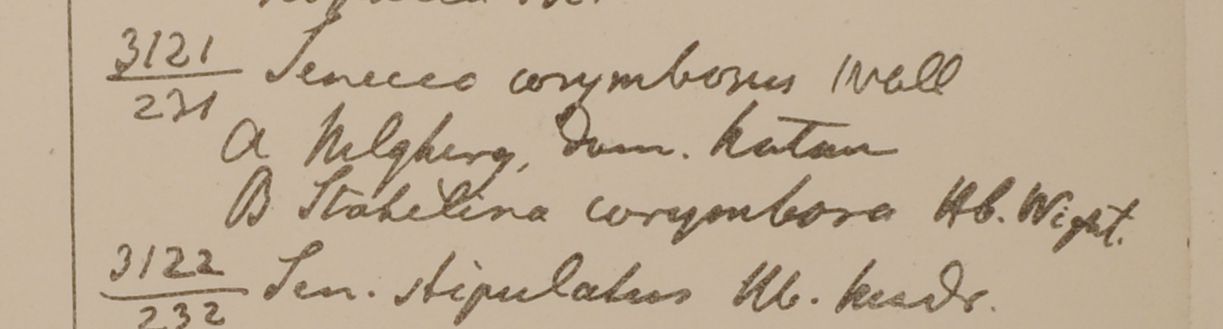 3121 Senecio corymbosus Wall
231
A Nilghery, Dom. Noton
B Stahelina corymbosa Hb. Wight.
3122 Sen. stipulatus Hb. Madr.
232